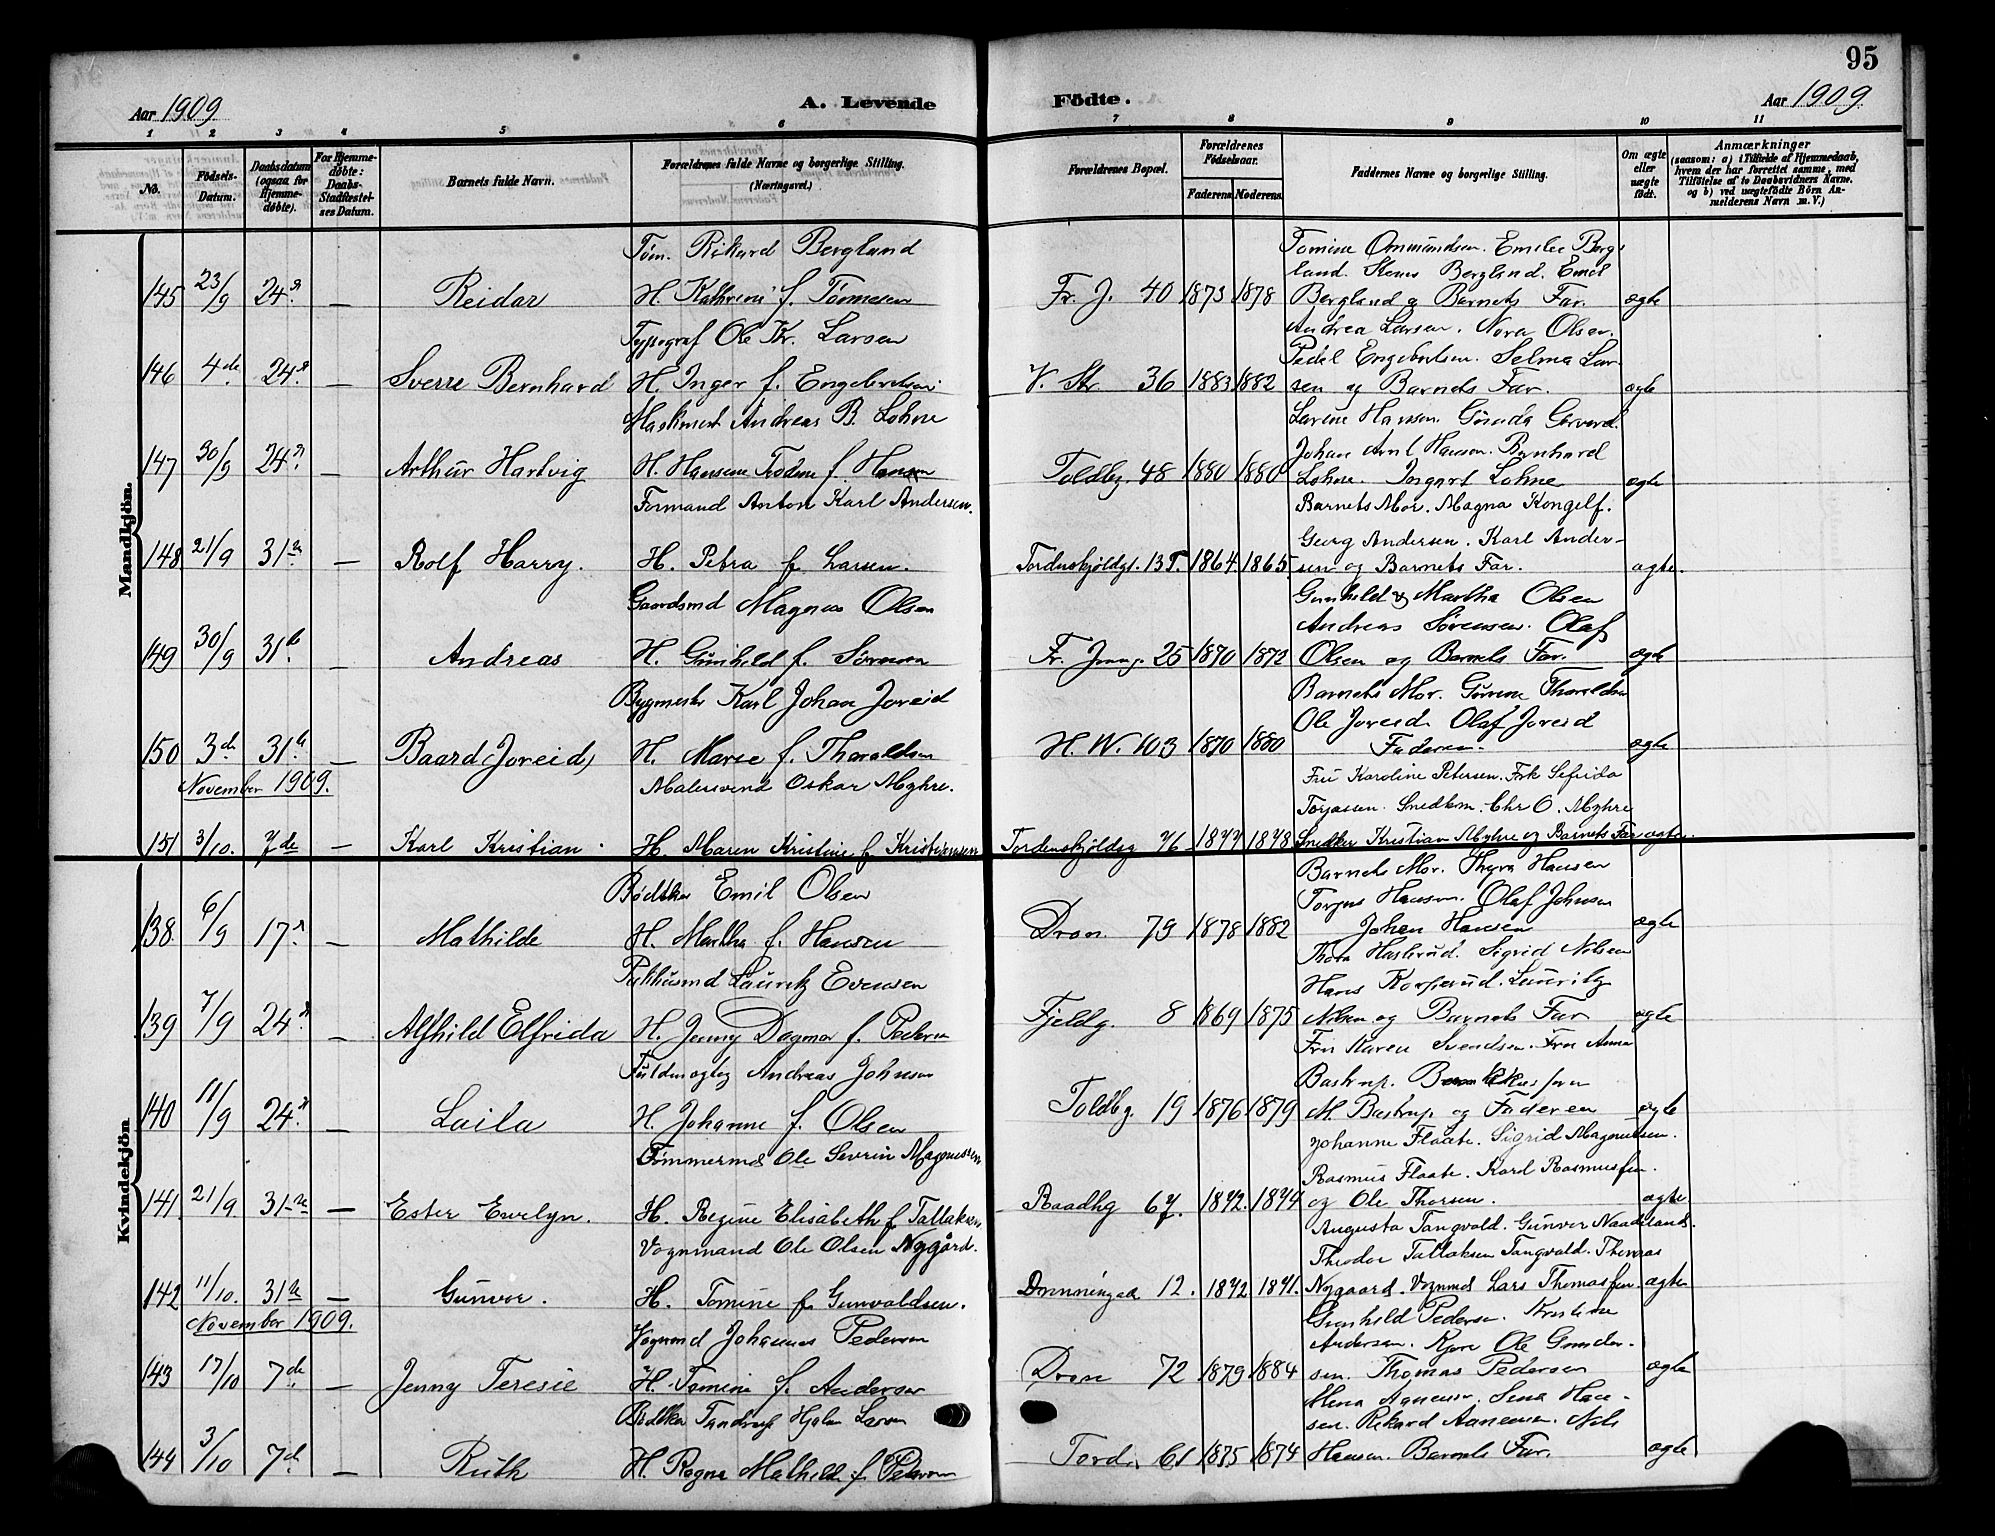 95
Aar 1909
A. Levende Födte.
Aar 1909
1 2 3 4 5 6 7 8 9 10 11
No.
Födsels-Datum.
Daabsdatum (ogsaa for Hjemmedöbte).
For Hjemmedöbte: Daabs-Stadfæstelses Datum.
Barnets fulde Navn.
Forældrenes fulde Navne og borgerlige Stilling. (Næringsvei.)
Forældrenes Bopæl.
Forældrenes Födselsaar.
Faderens
Moderens
Faddernes Navne og borgerlige Stilling.
Om ægte eller uægte födt.
Anmærkninger
(saasom: a) i Tilfælde af Hjemmedaab, hvem der har forrettet samme, med Tilföielse af to Daabsvidners Navne, og b) ved uægtefödte Börn Anmelderens Navn m. V.)
Mandkjön.
Tøm. Rikard Bergland
Tomine Ommundsen. Emilie Berg-
land. Bergland. Emil
145 23/9 24de — Reidar H. Kathrine f. Tønnesen Fr. J. 40 1873 1878 Bergland og Barnets Far. ægte
Typograf Ole Kr. Larsen
Andrea Larsen. Nora Olsen.
Pedel Engebretsen. Selma Lar-
146 4de 24de — Sverre Bernhard H. Inger f. Engebretsen V. Str. 36 1883 1882 sen og Barnets Far. ægte
Maskinist Andreas B. Lohne
Larine Hansen. Gunda
Johan Arnt Hansen. Bernhard
147 30/9 24de — Arthur Hartvig H. Hansine Todine f. Hansen Toldbg. 48 1880 1880 Lohne. Lohne ægte
Formand Anton Karl Andersen.
Barnets Mor. Magna Kongelf.
Georg Andersen. Karl Ander-
148 21/9 31te — Rolf Harry. H. Petra f. Larsen. Tordenskjoldgt. 1864. 1865. sen og Barnets Far. ægte.
Gaardsmd Magnus Olsen
Gunhild & Martha Olsen
Andreas Sørensen. Olaf
149 30/9 31te — Andreas H. Gunhild f. Sørensen Fr. 25 1870 1872 Olsen og Barnets Far. ægte
Bygmester Karl Johan Joreid
Barnets Mor. Thoraldsen
Ole Joreid Olaf Joreid
150 3de 31te — Baard (Joreid) H. Marie f. Thoraldsen H. W. 103 1870 1880 Faderen. ægte
November 1909.
Malersvend Oskar Myhre.
Fru Karoline Petersen. Frk Sefrida
Torjussen. Snedkerm. Chr O. Myhre
151 3/10. 7de — Karl Kristian. H. Maren Kristine f. Kristiansen Tordenskjoldsg 76 1877 1878 Snedker Kristian Myhre og Barnets Far ægte.
Kvindekjön
Bødtker Emil Olsen
Barnets Mor. Thyra Hansen
Torjus Hansen. Olaf Johnsen
138. 6/9 17de — Mathilde H. Martha f. Hansen Dron. 79 1878 1882 Johan Hansen ægte
Pakhusmd Lauritz Evensen
Thora Hasterud. Sigrid Nilsen
Hans Lauritz
139 7/9 24de — Alfhild Elfrida H. Jenny Dagmar f. Pedersen Fjeldg. 8 1869 1875 Nilsen og Barnets Far ægte
Andreas Johnsen
Fru Karen Svendsen. Fru Anna
Bastrup.
140 11/9 24de — Laila H. Johanne f. Olsen Toldbg. 19 1876 1879 M. Bastrup og Faderen ægte
Tømmermd Ole Sevrin Magnussen
Johanne Flaate. Sigrid Magnussen.
Rasmus Flaate. Karl Rasmussen.
141 21/9 31te — Ester Evelyn. H. Regine Elisabeth f Tallaksen Raadhg 67. 1872. 1874 og Ole Thorsen. ægte
Vognmand Ole Olsen Nygård.
Augusta Tangvald. Gunvor Naadeland.
Theodor Tallaksen Tangvald. Thomas
142 11/10. 31te — Gunvor. H. Tomine f Gunvaldsen. Dronningens 12. 1872. 1871. Nygaard. Vognmd Lars Thomassen. ægte
November 1909.
Vognmd Johannes Pedersen
Gunhild Pedersen. Kristine
Andersen. Kjøre Ole Gunder-
143 17/10 7de — Jenny Teresie H. Tomine f. Andersen Dron 72 1879 1884 sen. Thomas Pedersen ægte
Bødtker Tandrup Hjalm Larsen
Mena Aanensen. Sena Han-
sen. Rikard Aanensen. Nils
144 3/10 7de — Ruth H. Ragna Mathilde f. Pedersen Tord. 61 1875 1874 Hansen. Barnets Far. ægte